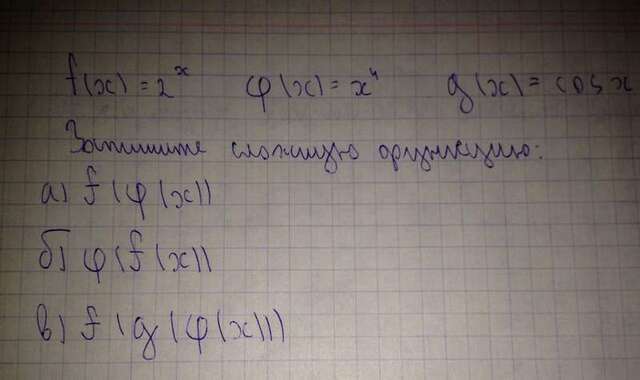 f(x) = 2^x φ(x) = x^4 g(x) = cos x
Запишите сложную функцию:
а) f(φ(x))
б) φ(f(x))
в) f(g(φ(x)))